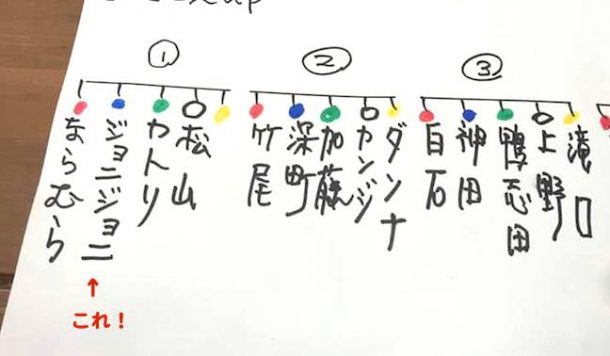 ①
ならむら
ジョニジョニ
カトリ
松山
②
竹尾
深町
加藤
カンジ
ダンナ
③
白石
神田
鴨志田
上野
滝口
↑
これ！